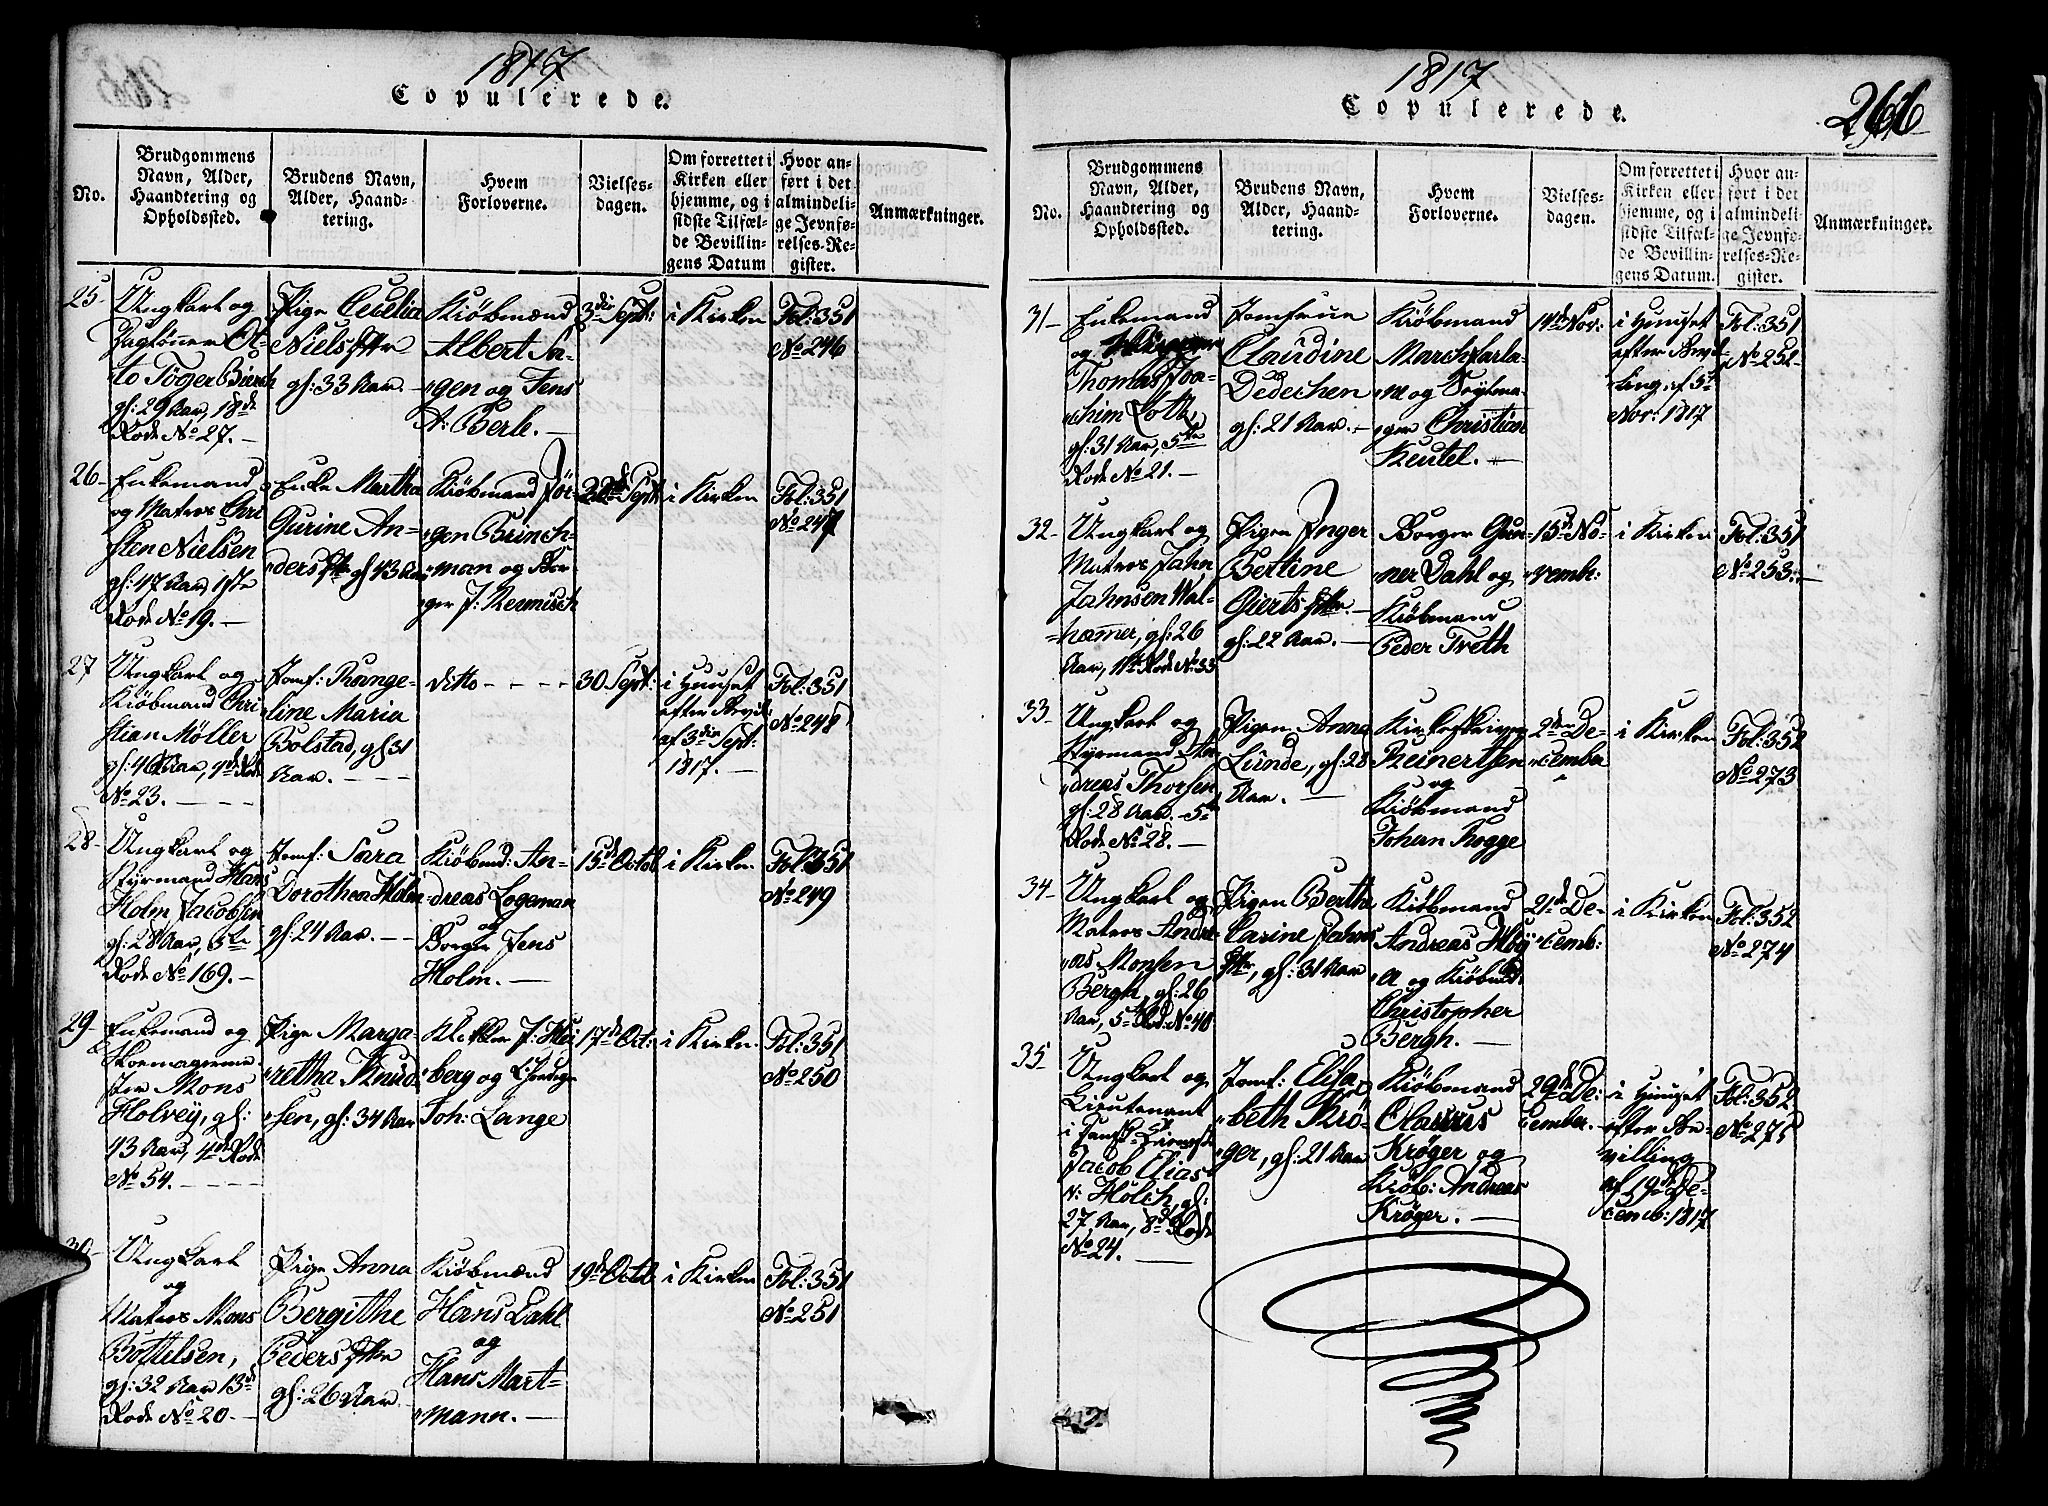 1817
Copulerede.
No.
Brudgommens
Navn, Alder,
Haandtering og
Opholdssted.
Brudens Navn,
Alder, Haand-
tering.
Hvem
Forloverne.
Vielses-
dagen.
Om forrettet i
Kirken eller
hjemme, og i
sidste Tilfæl-
de Bevillin-
gens Datum
Hvor an-
ført i det
almindeli-
ge Jevnfø-
relses-Re-
gister.
Anmærkninger.
25-
Ungkarl og
Daglønner Ot-
to Tøger Büsch
gl: 29 Aar, 18de
Rode No 27. -
Pige Cecelia
Niels
gl: 33 Aar. -
Kiöbmænd
Albert Sa-
gen og Jens
A: Berle. -
3die Sept:
i Kirken
Fol: 351
No 246
26-
Enkemand
og Matros Chri
sten Nielsen
gl: 47 Aar, 1ste
Rode No 19. -
Enke Martha
Gurine An-
ders gl 43 Aar
Kiöbmand Jör-
gen Brinch-
man og Bor-
ger J: Remisch
22de Sept:
i Kirken
Fol: 351
No 247
27
Ungkarl og
Kiöbmand Chri
stian Møller
gl: 46 Aar, 4de Rode
No 23. - - - -
Jomf: Range-
line Maria
Bolstad, gl 31
Aar. - - -
ditto - - - -
30 Sept:
i Huuset
efter Bevil:
af 3die Sept:
1817. -
Fol: 351
No 248
28-
Ungkarl og
Styrmand Hans
Holm Jacobsen
gl: 28 Aar, 5te
Rode No 169. -
Jomf: Sara
Dorothea Holm
gl: 24 Aar. - -
Kiöbmd: An-
dreas Logeman
og
Borger Jens
Holm. -
15de Octob
i Kirken
Fol: 351
No 249
29-
Enkemand og
Skoemagerme-
ster Mons
Holvey, gl:
43 Aar, 4de Rode
No 54. - - - -
Pige Marga
retha Knud
sen, gl: 34 Aar
berg og
Joh: Lange
17de Oct:
i Kirken
Fol: 351
No 250
30-
Ungkarl
og
Matros Mons
Bottelsen,
gl: 32 Aar 13de
Rode No 20. -
Pige Anna
Bergithe
Peders
gl: 26 Aar.
Kiöbmænd
Hans Dahl
og
Hans Mart-
mann. -
19de Octob
i Kirken
Fol: 351
No 251
1817
Copulerede.
266
No.
Brudgommens
Navn, Alder,
Haandtering og
Opholdssted.
Brudens Navn,
Alder, Haand-
tering.
Hvem
Forloverne.
Vielses-
dagen.
Om forrettet i
Kirken eller
hjemme, og i
sidste Tilfæl-
de Bevillin-
gens Datum.
Hvor an-
ført i det
almindeli-
ge Jevnfø-
relses-Re-
gister.
Anmærkninger.
31-
Enkemand
og
Thomas Joa-
chim Loth,
gl: 31 Aar, 5te
Rode No 21. -
Jomfrue
Claudine
Dedechen
gl: 21 Aar. -
Kiöbmand
March
og
ger Christian
Keutel. -
14de Nov:
i Huuset
efter Bevil-
ling af 5te
Nov: 1817
Fol: 351
No 252-
32-
Ungkarl og
Matros Jahn
Jahnsen Wal-
hamer, gl: 26
Aar, 11te Rode No 33
Pigen Inger
Bertine
Gierts
gl: 22 Aar. -
Borger Gun-
ner Dahl og
Kiöbmand
Peder Treth
15de No-
vemb:
i Kirken
Fol: 351
No 253. -
33-
Ungkarl og
Styrmand An-
dreas Thorsen
gl: 28 Aar. 5te
Rode No 28. -
Pigen Anna
Lunde, gl: 28
Aar. -
Reinertsen
og
Kiöbmand
Johan Rogge
2den De-
cember
i Kirken
Fol: 352
No 273
34-
Ungkarl og
Matros Andre-
as Monsen
Bergh, gl: 26
Aar, 5te Rode No 40
Pigen Berthe
Carine Jahns
gl: 31 Aar
Kiöbmand
Andreas
og Kiöbmd:
Christopher
Bergh. -
21de De-
cemb:
i Kirken
Fol: 352
No 274
35-
Ungkarl og
Lieutenant
Jacob Elias
N: Holch, gl:
27 Aar, 8de Rode
No 24. -
Jomf: Elisa
beth Krö-
ger, gl: 21 Aar
Kiöbmand
Claus
Krøger og
Kiöb: Andreas
Krøger. -
29de De-
cember.
i Huuset
efter Be-
villing
af 19de De-
cemb: 1817
Fol: 352
No 275